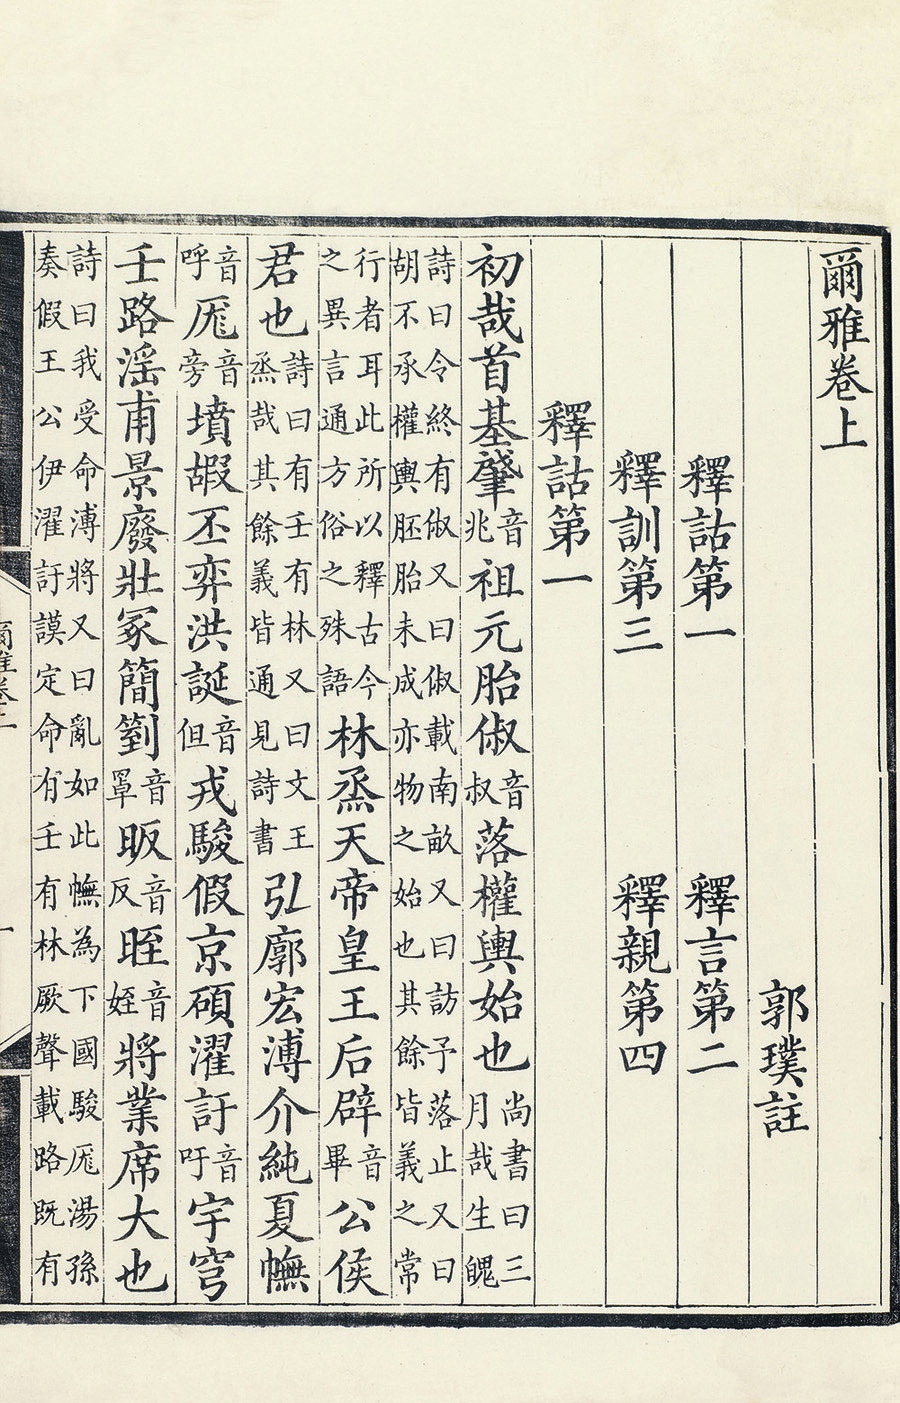 爾雅卷上
郭璞註
釋詁第一 釋言第二
釋訓第三 釋親第四
釋詁第一
初哉首基肇音兆祖元胎俶音叔落權輿始也尚書曰三月哉生魄
詩曰令終有俶又曰俶載南畝又曰訪予落止又曰
胡不承權輿胚胎未成亦物之始也其餘皆義之常
行者耳此所以釋古今之異言通方俗之殊語林烝天帝皇王后辟音畢公侯
君也詩曰有壬有林又曰文王烝哉其餘義皆通見詩書弘廓宏溥介純夏幠
音呼厖音旁墳嘏丕弈洪誕音但戎駿假京碩濯訏音吁宇穹
壬路淫甫景廢壯冢簡箌音罩昄音反晊音姪將業席大也
詩曰我受命溥將又曰亂如此幠為下國駿厖湯孫
奏假王公伊濯訏謨定命有壬有林厥聲載路既有